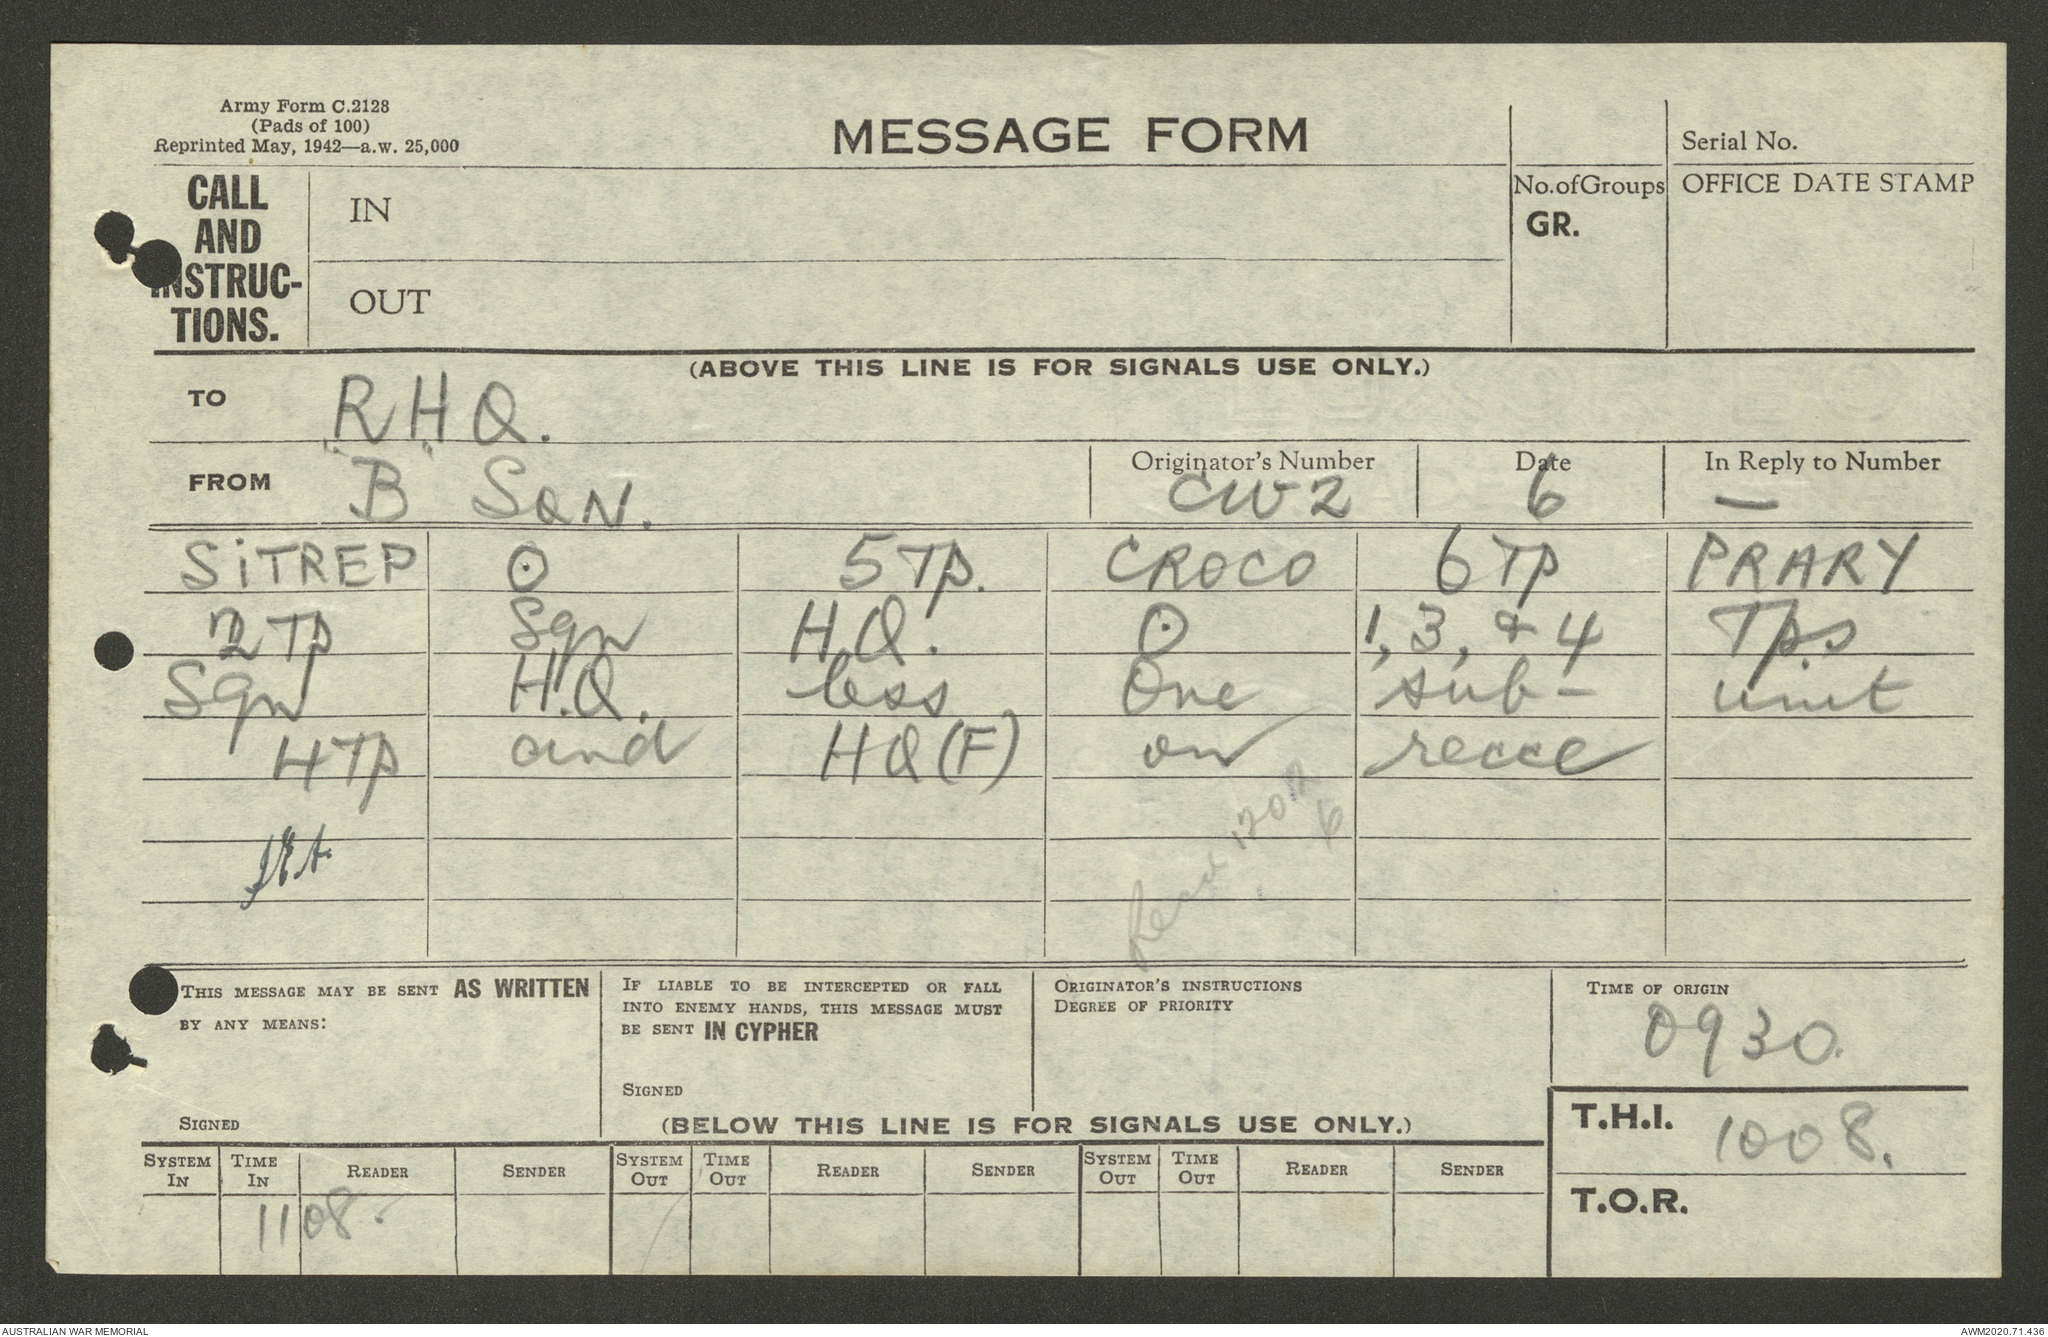 Army Form C.2128
(Pads of 100)
Reprinted May, 1942—a.w. 25,000
MESSAGE FORM
Serial No.
CALL AND INSTRUC-TIONS.
IN
OUT
No. of Groups
GR.
OFFICE DATE STAMP
(ABOVE THIS LINE IS FOR SIGNALS USE ONLY.)
TO RHQ.
FROM "B" SQN.
Originator's Number CW2
Date 6
In Reply to Number —
SiTREP ⊙ 5 Tp. CROCO 6 TP PRARY
2 Tp Sqn H.Q. ⊙ 1, 3, & 4 Tps
Sqn H.Q. less One sub- unit
4 Tp and HQ (F) on recce
1202
6
THIS MESSAGE MAY BE SENT AS WRITTEN
BY ANY MEANS:
SIGNED
IF LIABLE TO BE INTERCEPTED OR FALL
INTO ENEMY HANDS, THIS MESSAGE MUST
BE SENT IN CYPHER
SIGNED
ORIGINATOR'S INSTRUCTIONS
DEGREE OF PRIORITY
TIME OF ORIGIN
0930.
(BELOW THIS LINE IS FOR SIGNALS USE ONLY.)
T.H.I. 1008.
T.O.R.
SYSTEM IN TIME IN READER SENDER SYSTEM OUT TIME OUT READER SENDER SYSTEM OUT TIME OUT READER SENDER
1108.
AUSTRALIAN WAR MEMORIAL
AWM2020.71.436